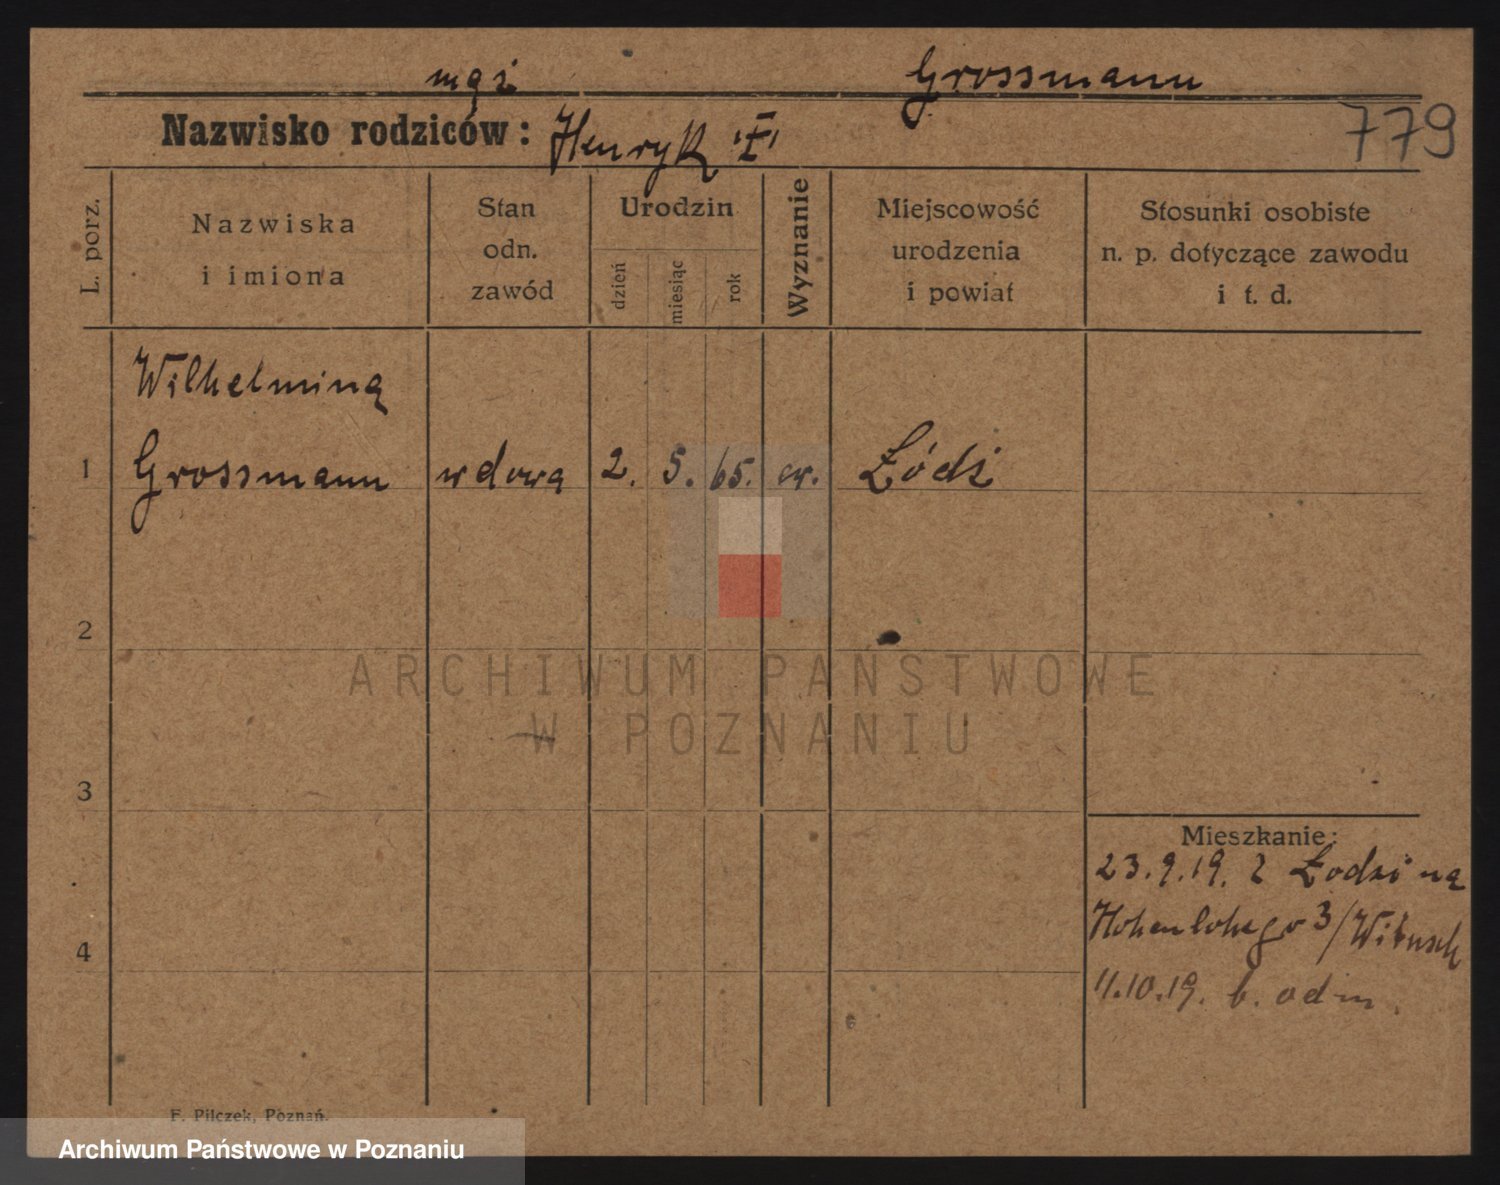 mąż Grossmann
Nazwisko rodziców: Henryk "Ŧ" 779
L. porz.
Nazwiska i imiona
Stan odn. zawód
Urodzin
dzień miesiąc rok
Wyznanie
Miejscowość urodzenia i powiat
Stosunki osobiste n. p. dotyczące zawodu i t. d.
Wilhelmina
1 Grossmann wdowa 2. 5. 65. ew. Łódź
2
ARCHIWUM PAŃSTWOWE
W POZNANIU
3
Mieszkanie:
23.9.19. z Łodzi na
Hohenlohego 3/Witusch
4
11.10.19. b. odm.
F. Pilczek, Poznań.
Archiwum Państwowe w Poznaniu